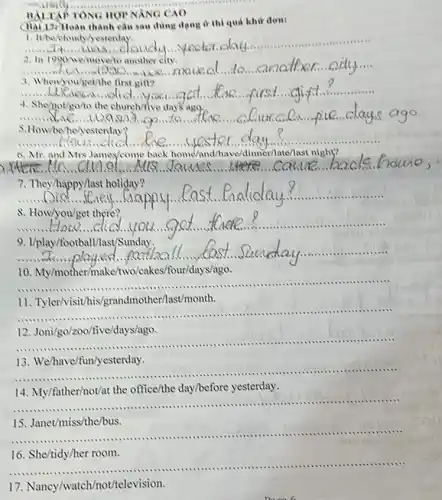 BÀI TẬP TỔNG HỢP NÂNG CAO
Bài 17: Hoàn thành câu sau dùng dạng ở thì quá khứ đơn:
1. It/be/cloudy/yesterday.
It was cloudy yesterday
2. In 1990/we/move/to another city.
In 1990 we moved to another city
3. When/you/get/the first gift?
When did you get the first gift?
4. She/not/go/to the church/five days ago.
She wasn't go to the church pie days ago
5.How/be/he/yesterday?
How did he yester day?
6. Mr. and Mrs James/come back home/and/have/dinner/late/last night?
Mr. and Mrs James came back home,
7. They/happy/last holiday?
Did they happy last holiday?
8. How/you/get there?
How did you got there?
9. I/play/football/last/Sunday.
I played football last Sunday
10. My/mother/make/two/cakes/four/days/ago.
11. Tyler/visit/his/grandmother/last/month.
12. Joni/go/zoo/five/days/ago.
13. We/have/fun/yesterday.
14. My/father/not/at the office/the day/before yesterday.
15. Janet/miss/the/bus.
16. She/tidy/her room.
17. Nancy/watch/not/television.